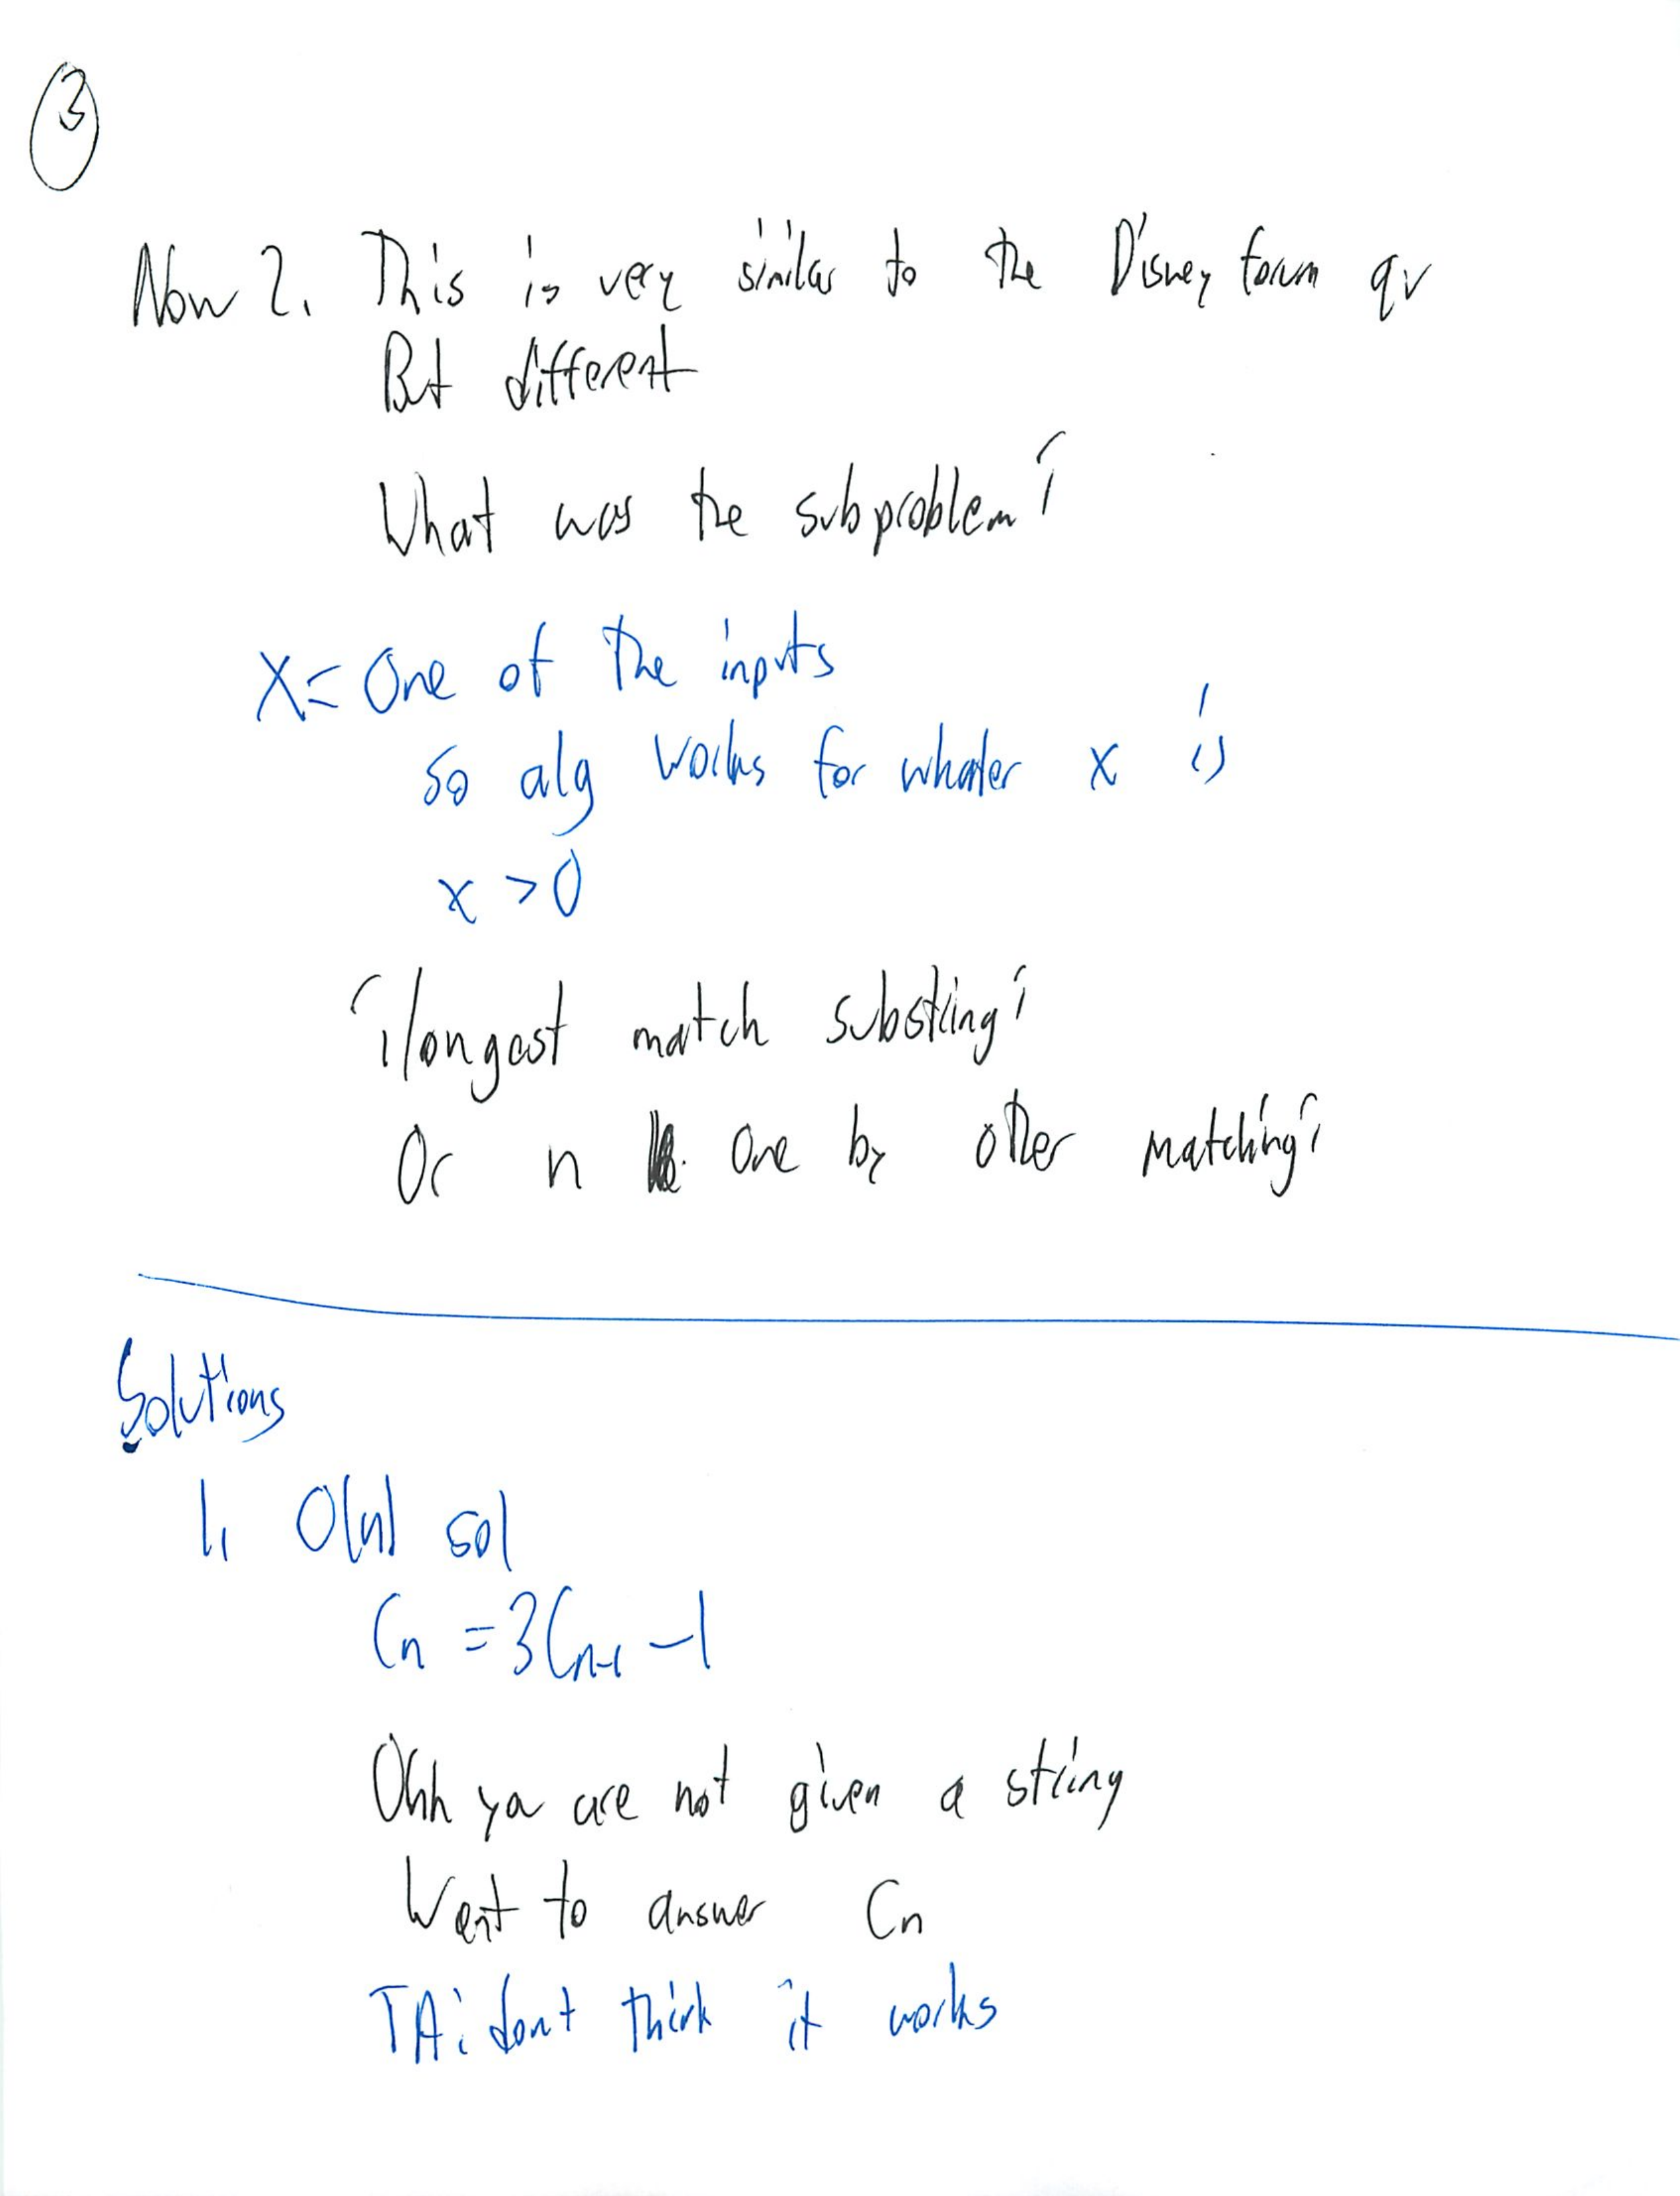 3
Now 2. This is very similar to the Disney forum qu
But different
What was the subproblem?
X = One of the inputs
So alg works for whatever x is
x > 0
? longest match substring?
Or n one by other matching?
Solutions
1. O(n) sol
Cn = 3Cn-1 - 1
Ohh you are not given a string
Want to answer Cn
TA: don't think it works